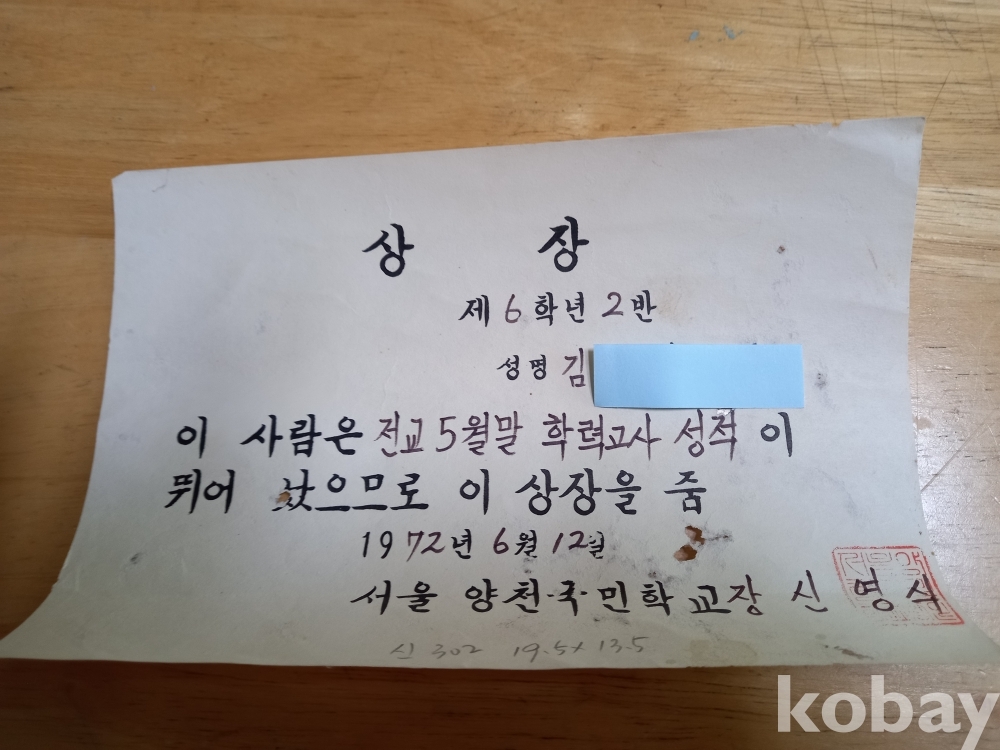 상 장
제 6 학년 2 반
성명 김
이 사람은 전교 5월말 학력고사 성적 이
뛰어 났으므로 이 상장을 줌
1972년 6월 12일
서울 양천·국·민학교장 신 영 식
신 302 19.5 x 13.5
kobay